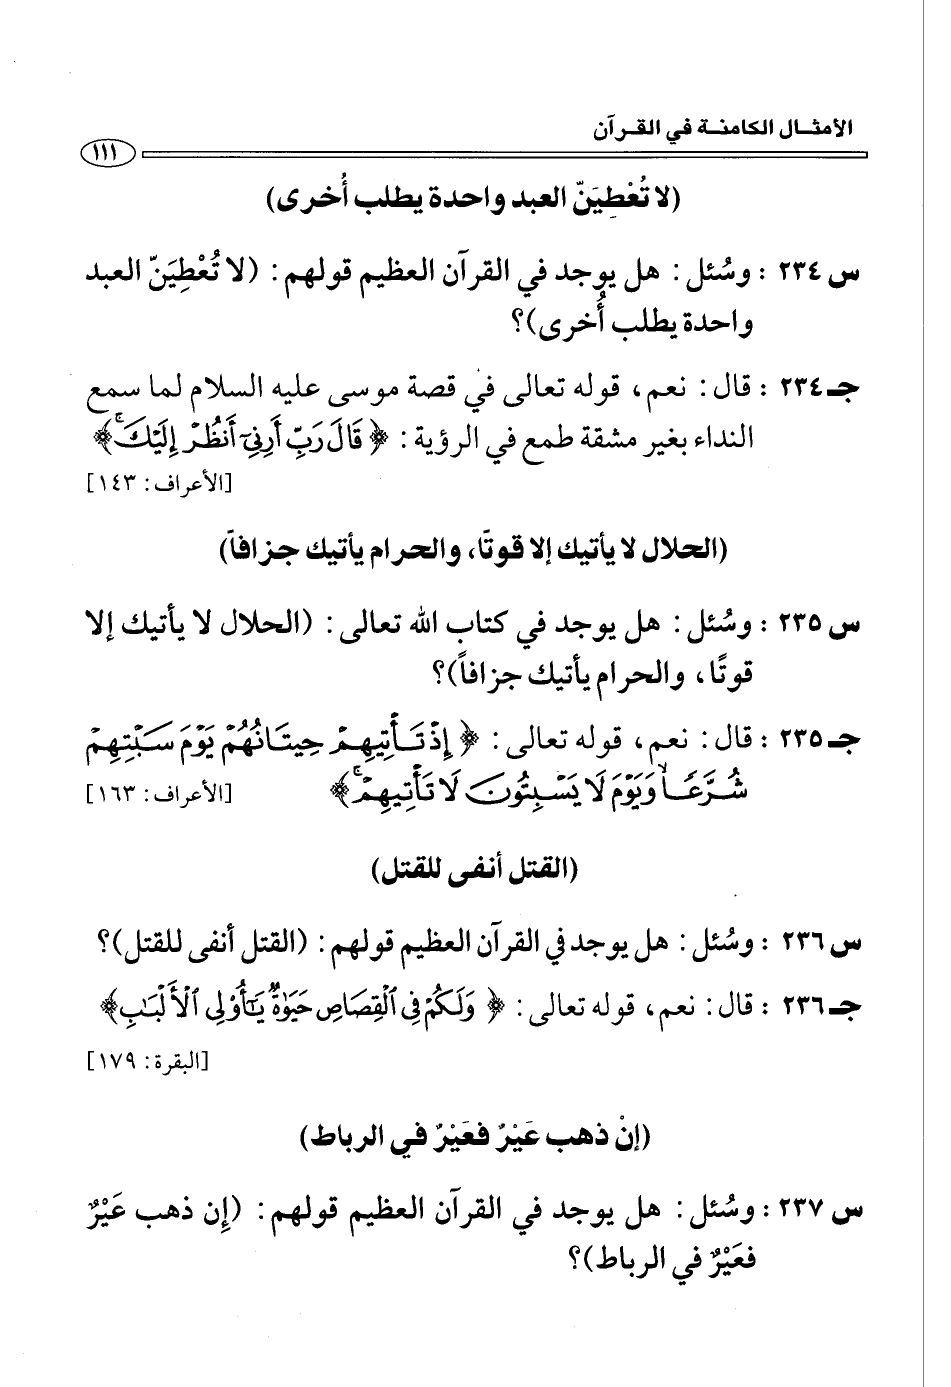 الأمثـال الكامنـة في القـرآن
١١١
(لا تُعْطِيَنّ العبد واحدة يطلب أُخرى)
س ٢٣٤ : وسُئل: هل يوجد في القرآن العظيم قولهم: (لا تُعْطِيَنّ العبد
واحدة يطلب أُخرى)؟
جـ ٢٣٤ : قال: نعم، قوله تعالى في قصة موسى عليه السلام لما سمع
النداء بغير مشقة طمع في الرؤية: ﴿قَالَ رَبِّ أَرِنِيٓ أَنظُرۡ إِلَيۡكَۚ﴾
[الأعراف: ١٤٣]
(الحلال لا يأتيك إلا قوتًا، والحرام يأتيك جزافاً)
س ٢٣٥ : وسُئل: هل يوجد في كتاب الله تعالى: (الحلال لا يأتيك إلا
قوتًا، والحرام يأتيك جزافاً)؟
جـ ٢٣٥ : قال: نعم، قوله تعالى: ﴿إِذۡ تَأۡتِيهِمۡ حِيتَانُهُمۡ يَوۡمَ سَبۡتِهِمۡ
شُرَّعٗا وَيَوۡمَ لَا يَسۡبِتُونَ لَا تَأۡتِيهِمۡۚ﴾ [الأعراف: ١٦٣]
(القتل أنفى للقتل)
س ٢٣٦ : وسُئل: هل يوجد في القرآن العظيم قولهم: (القتل أنفى للقتل)؟
جـ ٢٣٦ : قال: نعم، قوله تعالى: ﴿وَلَكُمۡ فِي ٱلۡقِصَاصِ حَيَوٰةٞ يَٰٓأُوْلِي ٱلۡأَلۡبَٰبِ﴾
[البقرة: ١٧٩]
(إنْ ذهب عَيْرٌ فعَيْرٌ في الرباط)
س ٢٣٧ : وسُئل: هل يوجد في القرآن العظيم قولهم: (إن ذهب عَيْرٌ
فعَيْرٌ في الرباط)؟